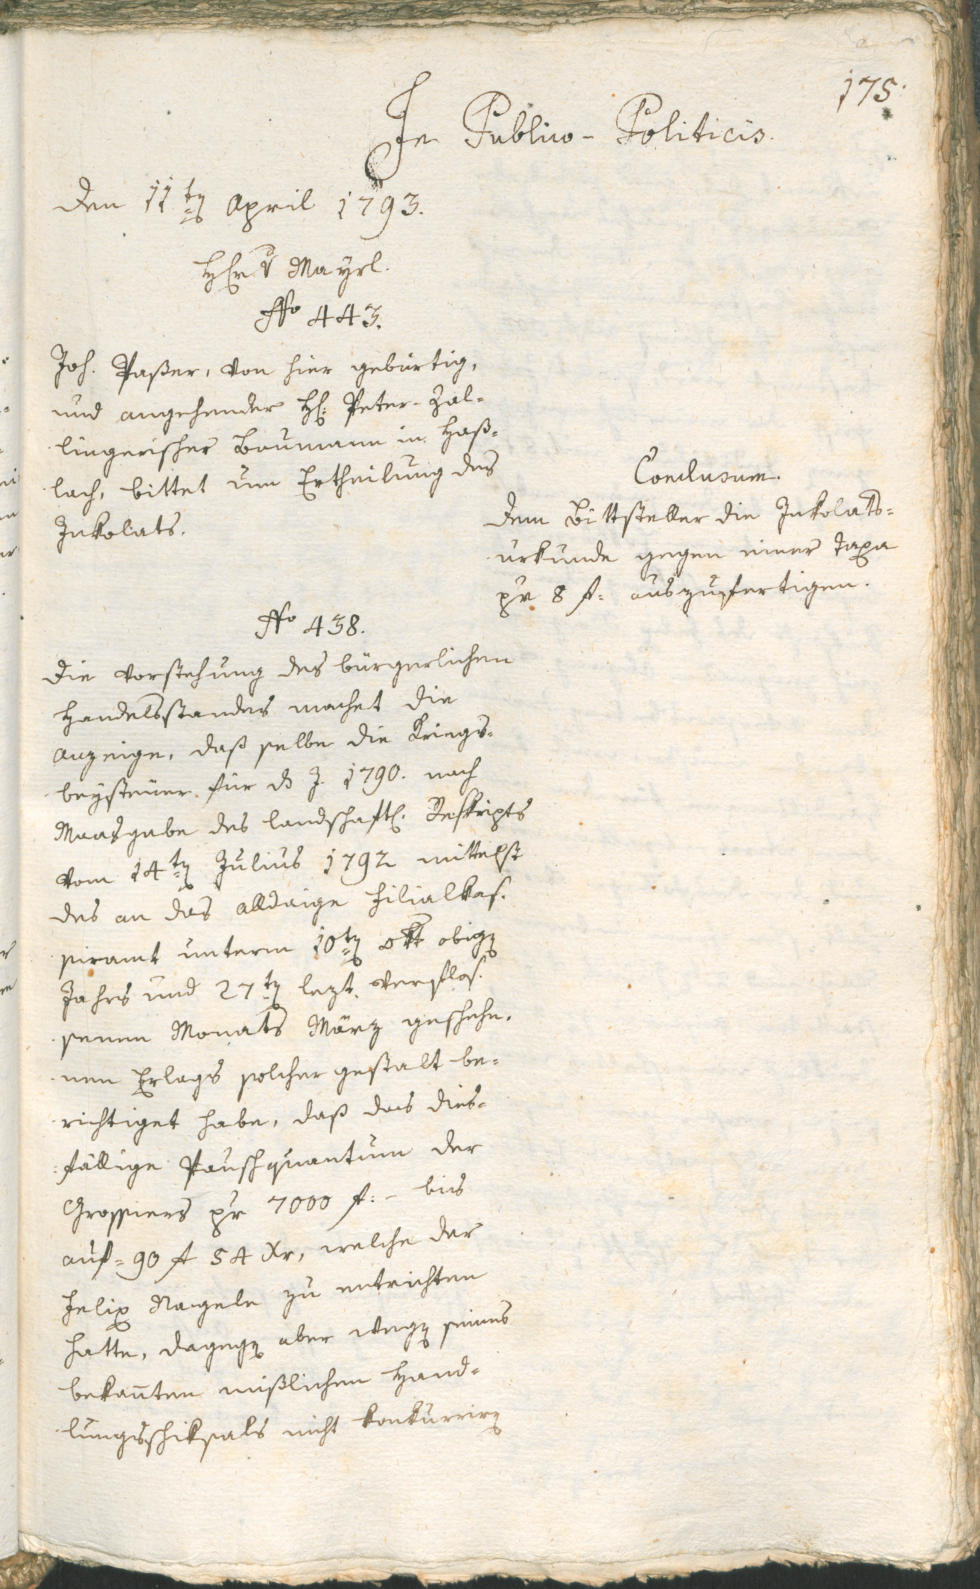 175.
In Publico-Politicis.
Den 11ten April 1793.
Hr v Mayrl.
No 443.
Joh. Paßer, von hier gebürtig,
und angehender H: Peter-Zal-
lingerischer Baumann in Haß-
lach, bittet um Ertheilung des
Inkolats.
Conclusum.
Dem Bittsteller die Inkolats-
urkunde gegen einer Taxa
pr 8 f: auszufertigen.
No 438.
Die Vorstehung des bürgerlichen
Handelsstandes machet die
Anzeige, daß selbe die Kriegs-
beysteuer für d J. 1790. nach
Maasgabe des landschaftl. Reskripts
vom 14ten Julius 1792 mittelst
des an das alldaige Filialkas-
sieramt unterm 10ten Okt obigen
Jahrs und 27ten lezt. verflos-
senen Monats März geschehe-
nen Erlags solcher gestalt be-
richtiget habe, daß das dies-
fällige Pauschquantum der
Grossiers pr 7000 f:- bis
auf= 90 f 54 Xr, welche der
Felix Nagele zu entrichten
hatte, dagegen aber wegen seines
bekanten mißlichen Hand-
lungsschiksals nicht konkurriren